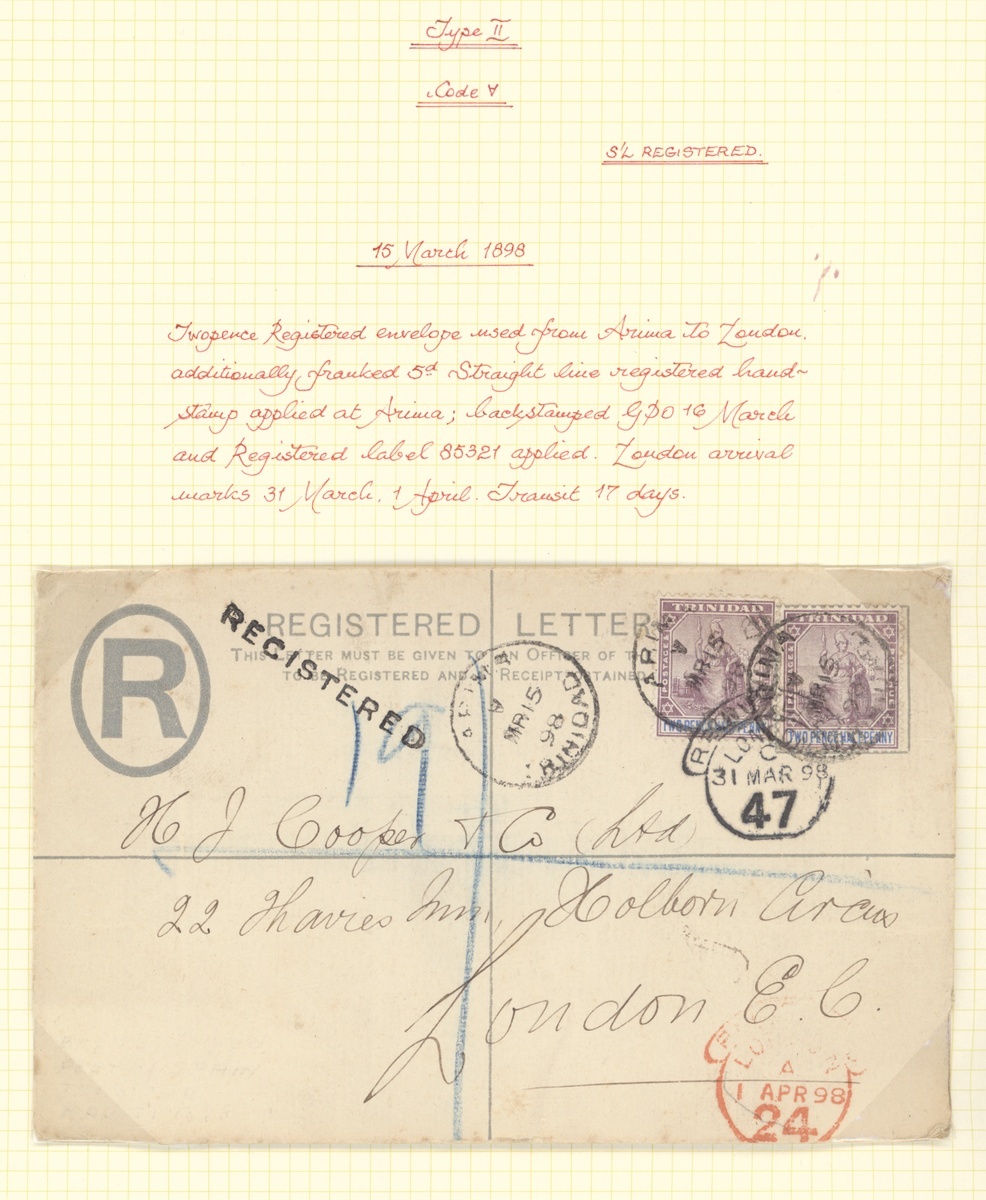 Type II
Code ∀
S'L REGISTERED.
15 March 1898
Twopence Registered envelope used from Arima to London,
additionally franked 5d Straight line registered hand-
stamp applied at Arima; backstamped GPO 16 March
and Registered label 85321 applied. London arrival
marks 31 March, 1 April. Transit 17 days.
R
REGISTERED LETTER
THIS LETTER MUST BE GIVEN TO AN OFFICER OF T
TO BE REGISTERED AND RECEIPT OBTAINED
REGISTERED
ARIMA
∀
MR 15
98
TRINIDAD
TRINIDAD
POSTAGE
TWO PENCE HALFPENNY
ARIMA
∀
MR 15
TRINIDAD
TWO PENCE HALFPENNY
MR 15
REGISTERED
LONDON
C
31 MAR 98
47
H J Cooper & Co (Ltd)
22 Thavies Inn, Holborn Circus
London E.C.
A
1 APR 98
24